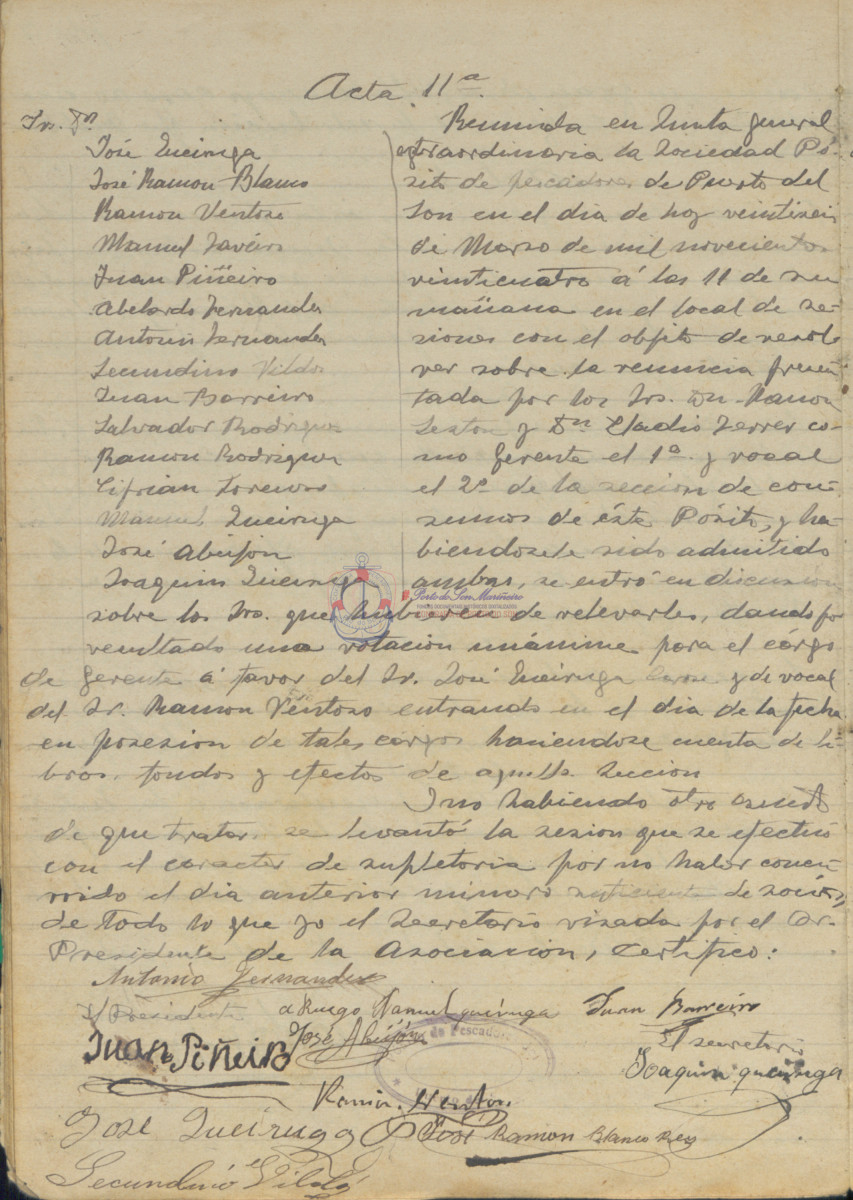 Acta 11ª
Srs. Dn
José Queiruga
José Ramon Blanco
Ramon Ventoso
Manuel Taveiro
Juan Piñeiro
Abelardo Fernandez
Antonio Fernandez
Secundino Vildó
Juan Barreiro
Salvador Rodriguez
Ramon Rodriguez
Ciprian Lorenzo
Manuel Queiruga
José Abuijon
Joaquin Queiruga
Reunida en Junta general
extraordinaria la Sociedad Pó-
sito de pescadores de Puerto del
Son en el dia de hoy veintiseis
de Marzo de mil novecientos
veinticuatro á las 11 de su
mañana en el local de se-
siones con el objeto de resol-
ver sobre la renuncia presen-
tada por los Srs. Dn Ramon
y Dn Eladio Ferrer co-
mo gerente el 1º y vocal
el 2º de la seccion de con-
sumos de éste Pósito, y ha-
biendosele sido admitido
ambas, se entró en discusion
sobre los Srs. que hubieren de relevarles, dando por
resultado una votacion unánime para el cárgo
de gerente á favor del Sr. José Queiruga y de vocal
del Sr. Ramon Ventoso entrando en el dia de la fecha
en posesion de tales cargos haciendose cuenta de li-
bros, fondos y efectos de aquella seccion
I no habiendo otro asunto
de que tratar se levantó la sesion que se efectuó
con el caracter de supletoria por no haber concu-
rrido el dia anterior número suficiente de socios,
de todo lo que yo el Secretario visada por el Sr.
Presidente de la Asociacion, certifico:
Antonio Fernandez
El Presidente
a Ruego Manuel queiruga
Juan Barreiro
Juan Piñeiro
José Abuijón
El secretario
Joaquin queiruga
Ramon Ventoso
José Queiruga
José Ramon Blanco Rey
Secundino Vildó
Porto do Son Mariñeiro